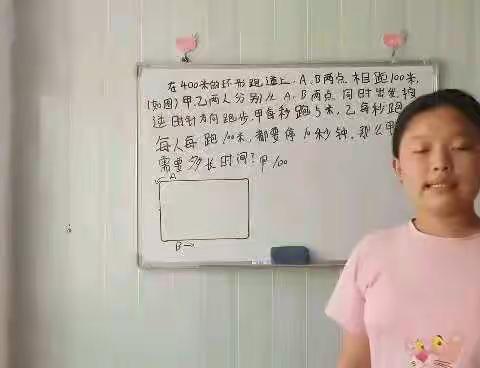 在400米的环形跑道上，A、B两点相距100米，
(如图)甲、乙两人分别从A、B两点同时出发，按
逆时针方向跑步，甲每秒跑5米，乙每秒跑
每人每跑100米，都要停10秒钟，那么甲
需要多长时间？甲100
A
B→